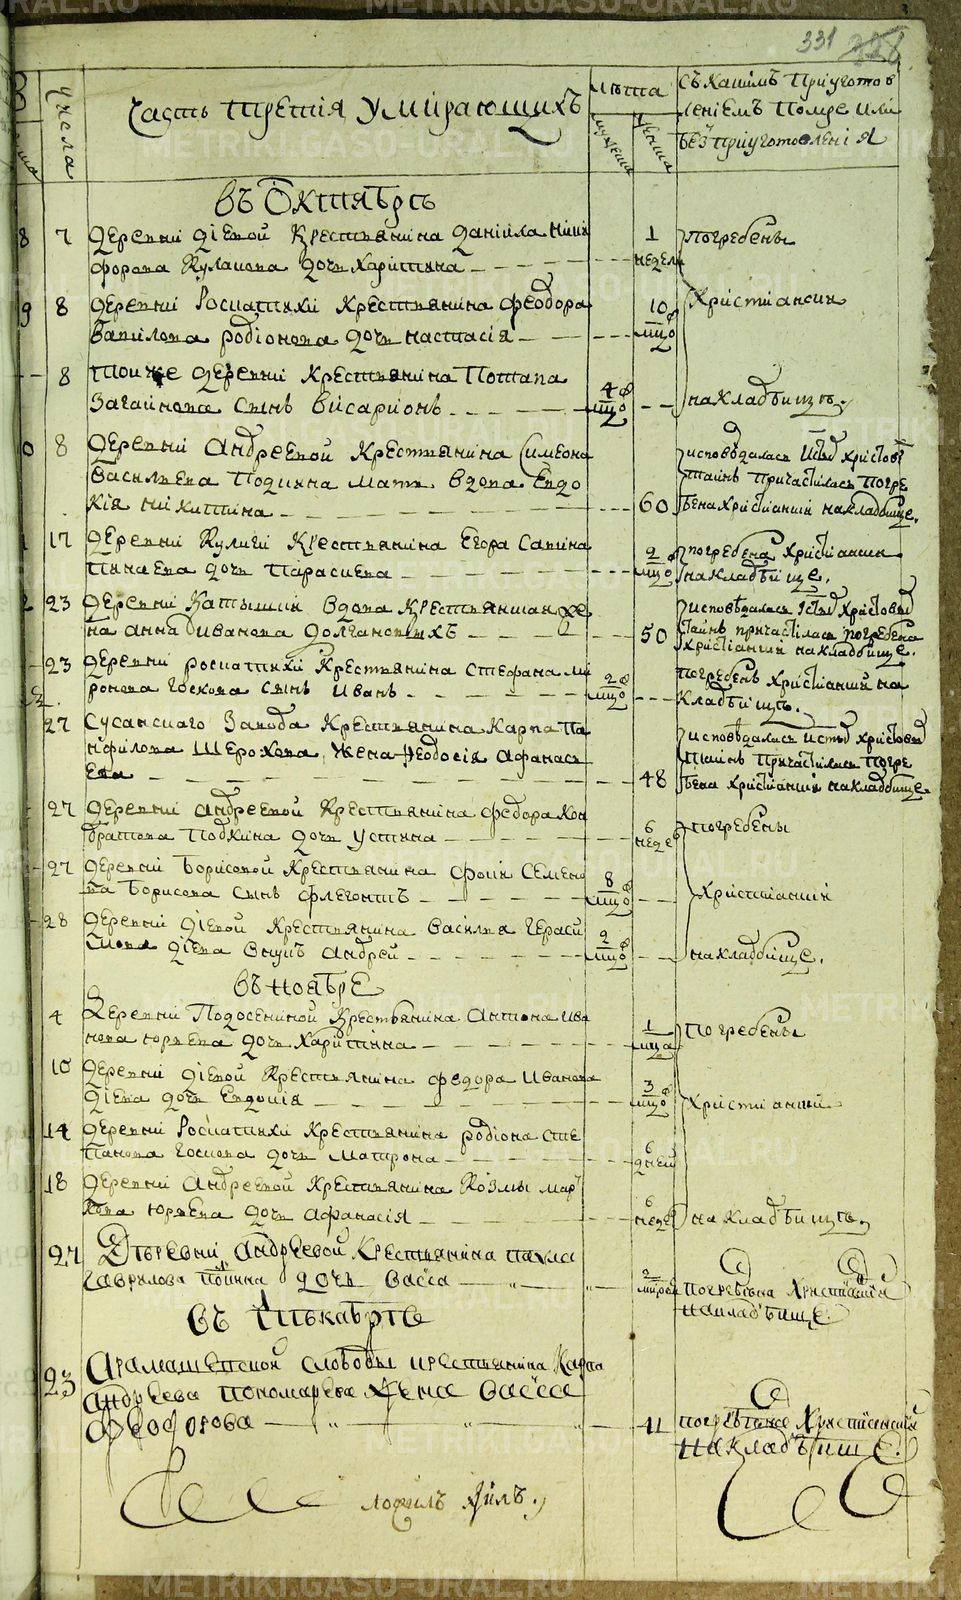 331
числа
Часть третія умирающихъ
лѣта
мужеска
женска
съ какимъ приуготов
леніемъ помре или
без приуготовленія
въ Октябрѣ
8 7 деревни діевой крестьянина даніила ники
форова кулакова дочь харитина 1 недели погребены
9 8 деревни роспатихи крестьянина феодора
вавилова родіонова дочь настасія 10 мцов христиански
8 тойже деревни крестьянина потапа
загайнова сынъ висаріонъ 4 мцов на кладбищѣ.
8 деревни андреевой крестьянина симеона
васильева подкина мать вдова евдо
кія никитина 60
исповѣдалась и стых христовых
таинъ причастилась погре
бена христиански на кладбище.
17 деревни кулиги крестьянина егора савина
дочь парасковья 2 мцов
погребена христиански
на кладбище.
23 деревни катышки вдова крестьянская же
на анна иванова долгановыхъ 50
исповѣдалась и стых христовых
таинъ причастилась погребена
христиански на кладбище.
23 деревни роспатихи крестьянина стефана ми
ронова госкова сынъ иванъ 2 мцов
погребенъ христиански на
кладбищѣ.
27 сусанскаго завода крестьянина карпа па
нфилова шорохова жена феодосія афанась
ева 48
исповѣдалась и стых христовых
таинъ причастилась погре
бена христиански на кладбище.
27 деревни андреевой крестьянина федора кон
дратова подкина дочь устина 6 недел погребены
27 деревни борисовой крестьянина фоки семено
ва борисова сынъ флегонтъ 8 мцов христиански
28 деревни діевой крестьянина василья гераси
мова діева внукъ андрей 2 мцов на кладбище.
въ ноябрѣ
4 деревни подосениной крестьянина антона ива
нова юрьева дочь харитина 1 мца погребены
10 деревни діевой крестьянина федора иванова
діева дочь евдокія 3 мцов христиански
14 деревни роспатихи крестьянина родіона сте
панова госкова дочь матрона 6 дней
18 деревни андреевой крестьянина козмы мар
кова юрьева дочь афанасія 6 недел на кладбищѣ.
24 дѣревни андрѣевой крестьянина павла
гаврилова дочь васса 2
погребѣна христиански
на кладбище.
въ декабрѣ
23 арамашевской слободы крестьянина карпа
андрѣева пономарева жена васса
федорова 41
погрѣбена христиански
на кладбище.